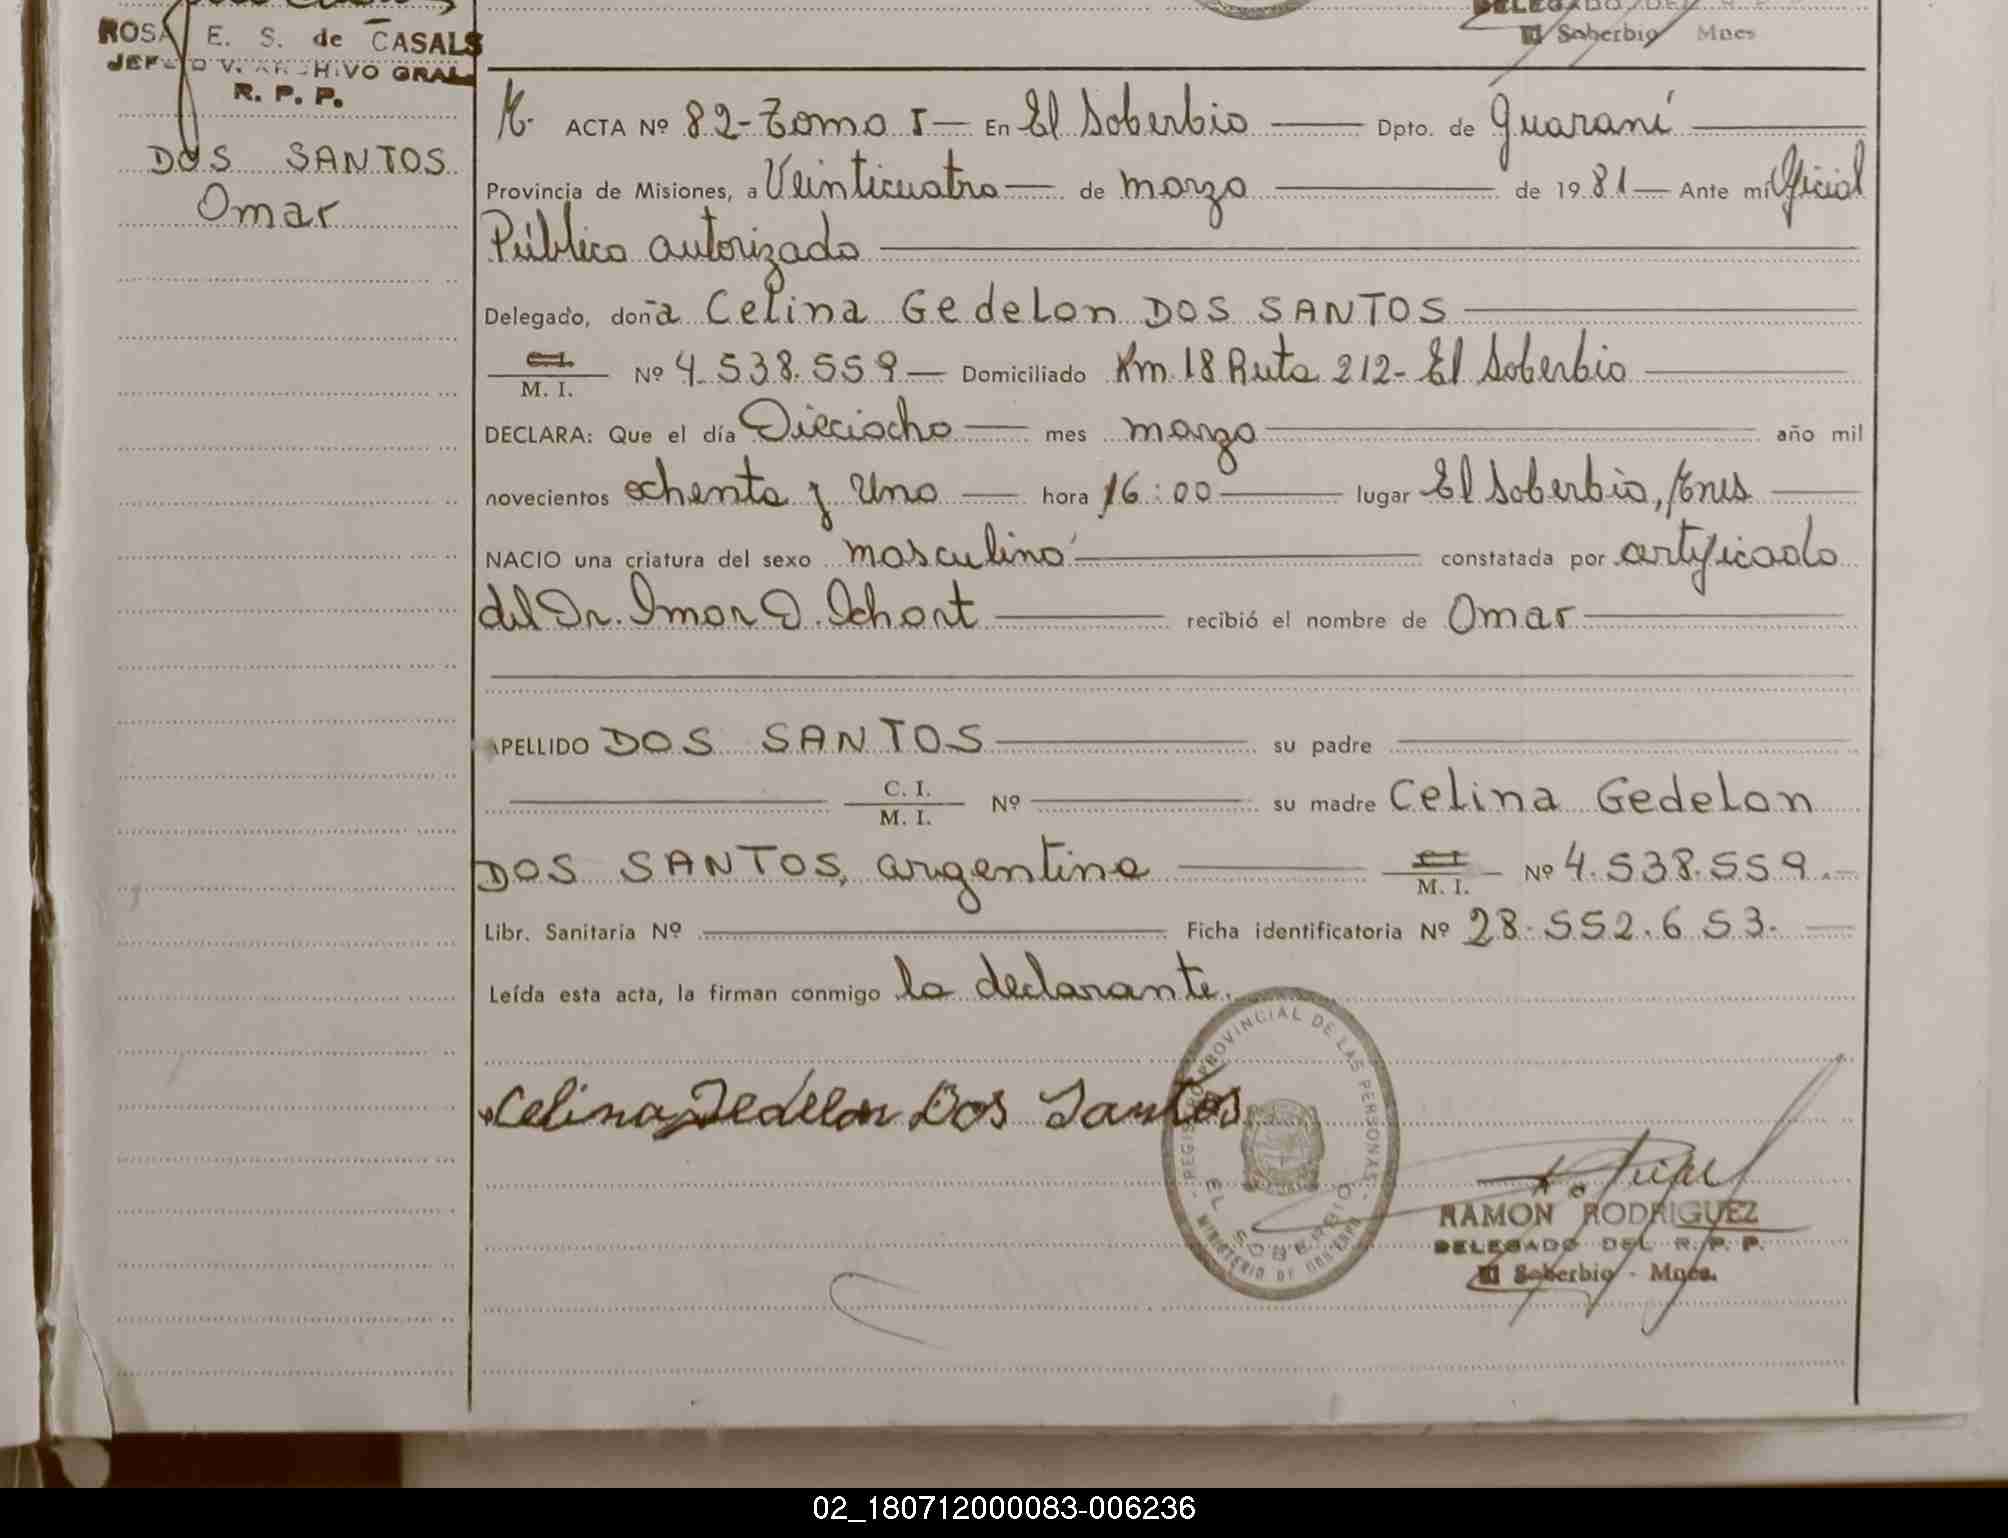 ROSA E. S. de CASALS
JEFE DIV. ARCHIVO GRAL.
R. P. P.
DOS SANTOS
Omar
DELEGADO DEL R. P. P.
El Soberbio Mnes
M. ACTA Nº 82-Tomo I- En El Soberbio Dpto. de Guaraní
Provincia de Misiones, a Veinticuatro de marzo de 1981 Ante mí Oficial
Público autorizado
Delegado, doña Celina Gedelon DOS SANTOS
C.I.
M. I. Nº 4.538.559- Domiciliado Km 18 Ruta 212- El Soberbio
DECLARA: Que el día Dieciocho mes marzo año mil
novecientos ochenta y Uno hora 16:00 lugar El Soberbio, Mnes
NACIO una criatura del sexo masculino constatada por certificado
del Dr. recibió el nombre de Omar
APELLIDO DOS SANTOS su padre
C. I.
M. I. Nº su madre Celina Gedelon
DOS SANTOS, argentina C.I.
M. I. Nº 4.538.559.-
Libr. Sanitaria Nº Ficha identificatoria Nº 28.552.653.
Leída esta acta, la firman conmigo la declarante.
Celina Gedelon Dos Santos
REGISTRO PROVINCIAL DE LAS PERSONAS
EL SOBERBIO
MINISTERIO DE GOBIERNO
RAMON RODRIGUEZ
DELEGADO DEL R. P. P.
El Soberbio - Mnes.
02_180712000083-006236